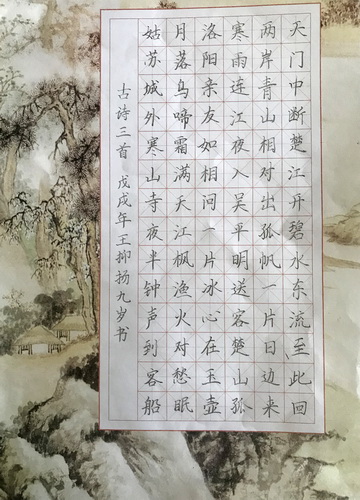 天门中断楚江开碧水东流至此回
两岸青山相对出孤帆一片日边来
寒雨连江夜入吴平明送客楚山孤
洛阳亲友如相问一片冰心在玉壶
月落乌啼霜满天江枫渔火对愁眠
姑苏城外寒山寺夜半钟声到客船
古诗三首 戊戌年王抑扬九岁书